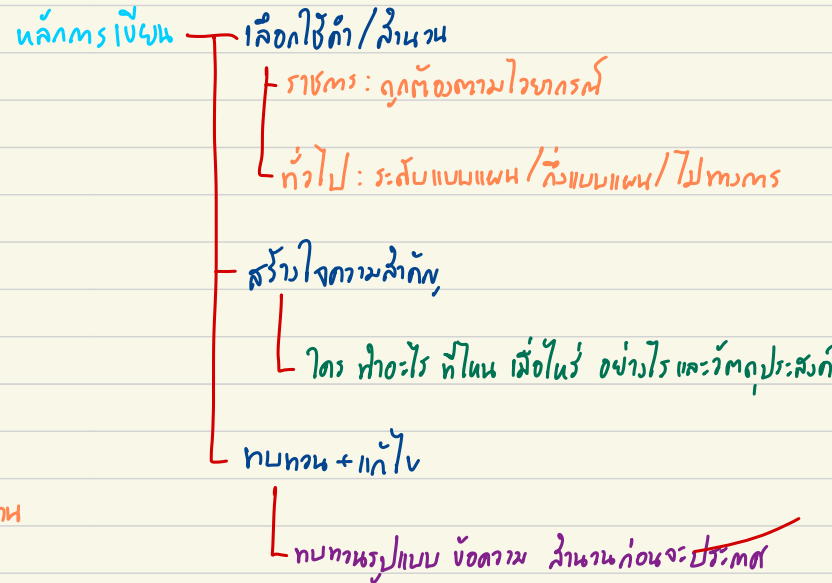 หลักการเขียน เลือกใช้คำ/สำนวน
ราชการ : ถูกต้องตามไวยากรณ์
ทั่วไป : ระดับแบบแผน/กึ่งแบบแผน/ไม่ทางการ
สร้างใจความสำคัญ
ใคร ทำอะไร ที่ไหน เมื่อไหร่ อย่างไร และวัตถุประสงค์
ทบทวน + แก้ไข
ทบทวนรูปแบบ ข้อความ สำนวนก่อนจะประกาศ